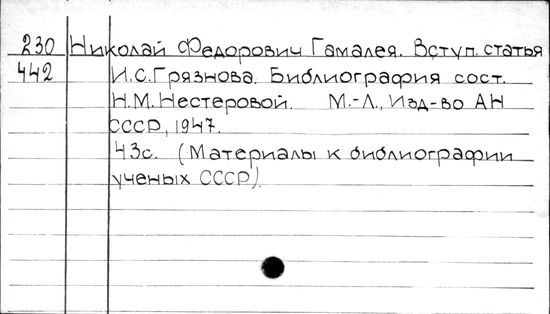 230 Николай Федорович Гамалея. Вступ. статья
442 И.С.Грязнова. Библиография сост.
Н.М.Нестеровой. М.-Л., Изд-во АН
СССР, 1947.
43с. (Материалы к библиографии
ученых СССР).